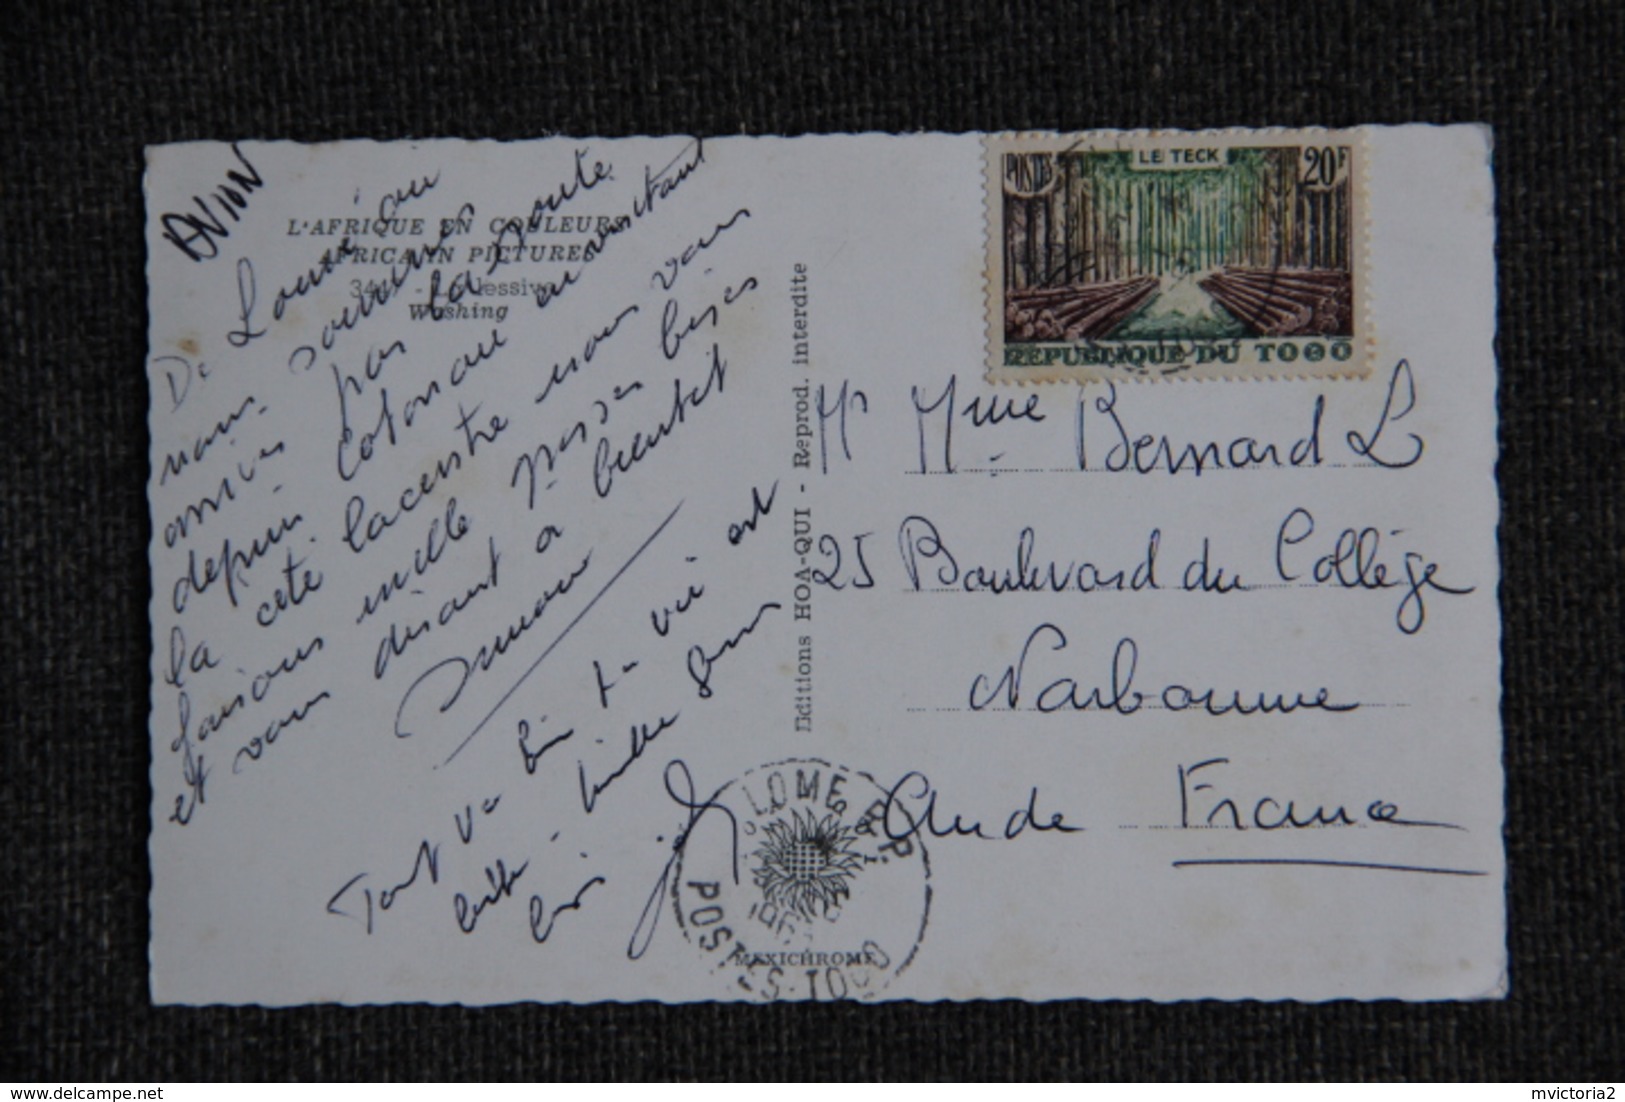 AVION
L'AFRIQUE EN COULEURS
AFRICA IN PICTURES
34 - La lessive
Washing
De Lomé où
nous sommes
arrivés par la route
depuis Cotonou en visitant
la cité lacustre nous vous
faisons mille grosses bises
et vous disant à bientôt
Tout va bien ta vie est
belle - mille
Editions HOA-QUI - Reprod. interdite
POSTES
LE TECK
20F
REPUBLIQUE DU TOGO
Mr Mme Bernard L
25 Boulevard du Collège
Narbonne
Aude France
LOME R.P.
POSTES-TOGO
MEXICHROME
mvictoria2